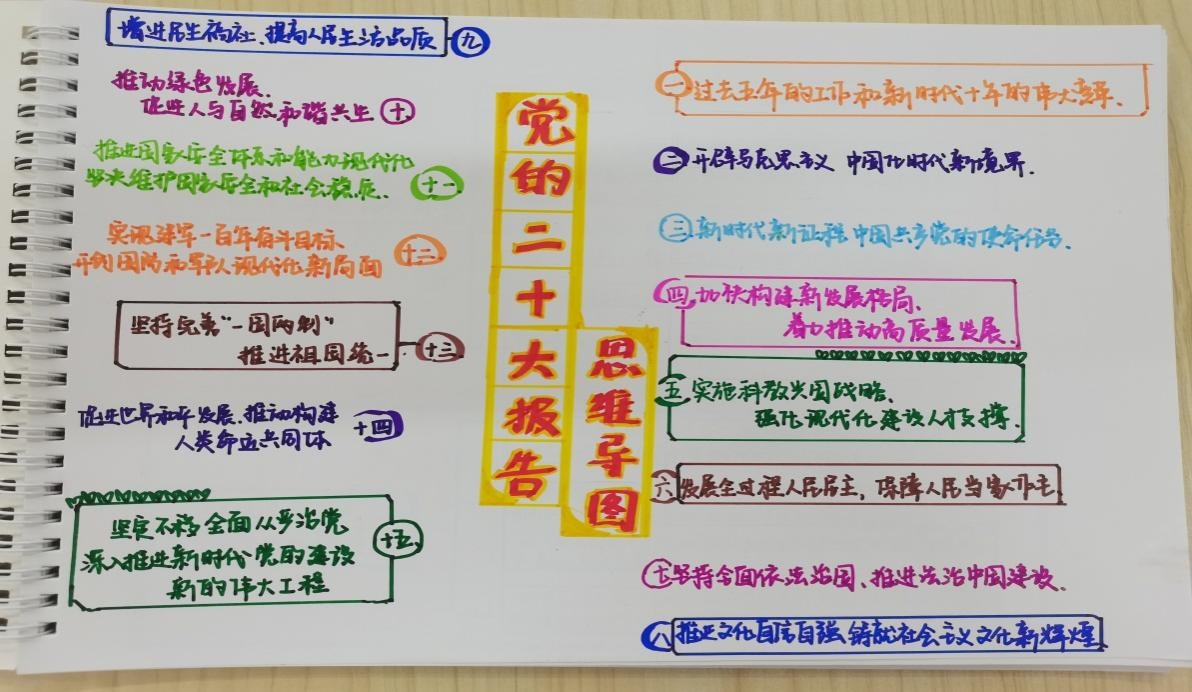 党的二十大报告
思维导图
一 过去五年的工作和新时代十年的伟大变革.
二 开辟马克思主义 中国化时代新境界.
三 新时代新征程中国共产党的使命任务.
四 加快构建新发展格局、
着力推动高质量发展.
五 实施科教兴国战略、
强化现代化建设人才支撑.
六 发展全过程人民民主,保障人民当家作主.
七 坚持全面依法治国、推进法治中国建设.
八 推进文化自信自强铸就社会主义文化新辉煌
增进民生福祉、提高人民生活品质 九
推动绿色发展.
促进人与自然和谐共生 十.
推进国家安全体系和能力现代化
坚决维护国家安全和社会稳定. 十一.
实现建军一百年奋斗目标、
开创国防和军队现代化新局面 十二
坚持完善“一国两制”
推进祖国统一. 十三.
促进世界和平发展.推动构建
人类命运共同体 十四
坚定不移全面从严治党
深入推进新时代党的建设
新的伟大工程 十五.